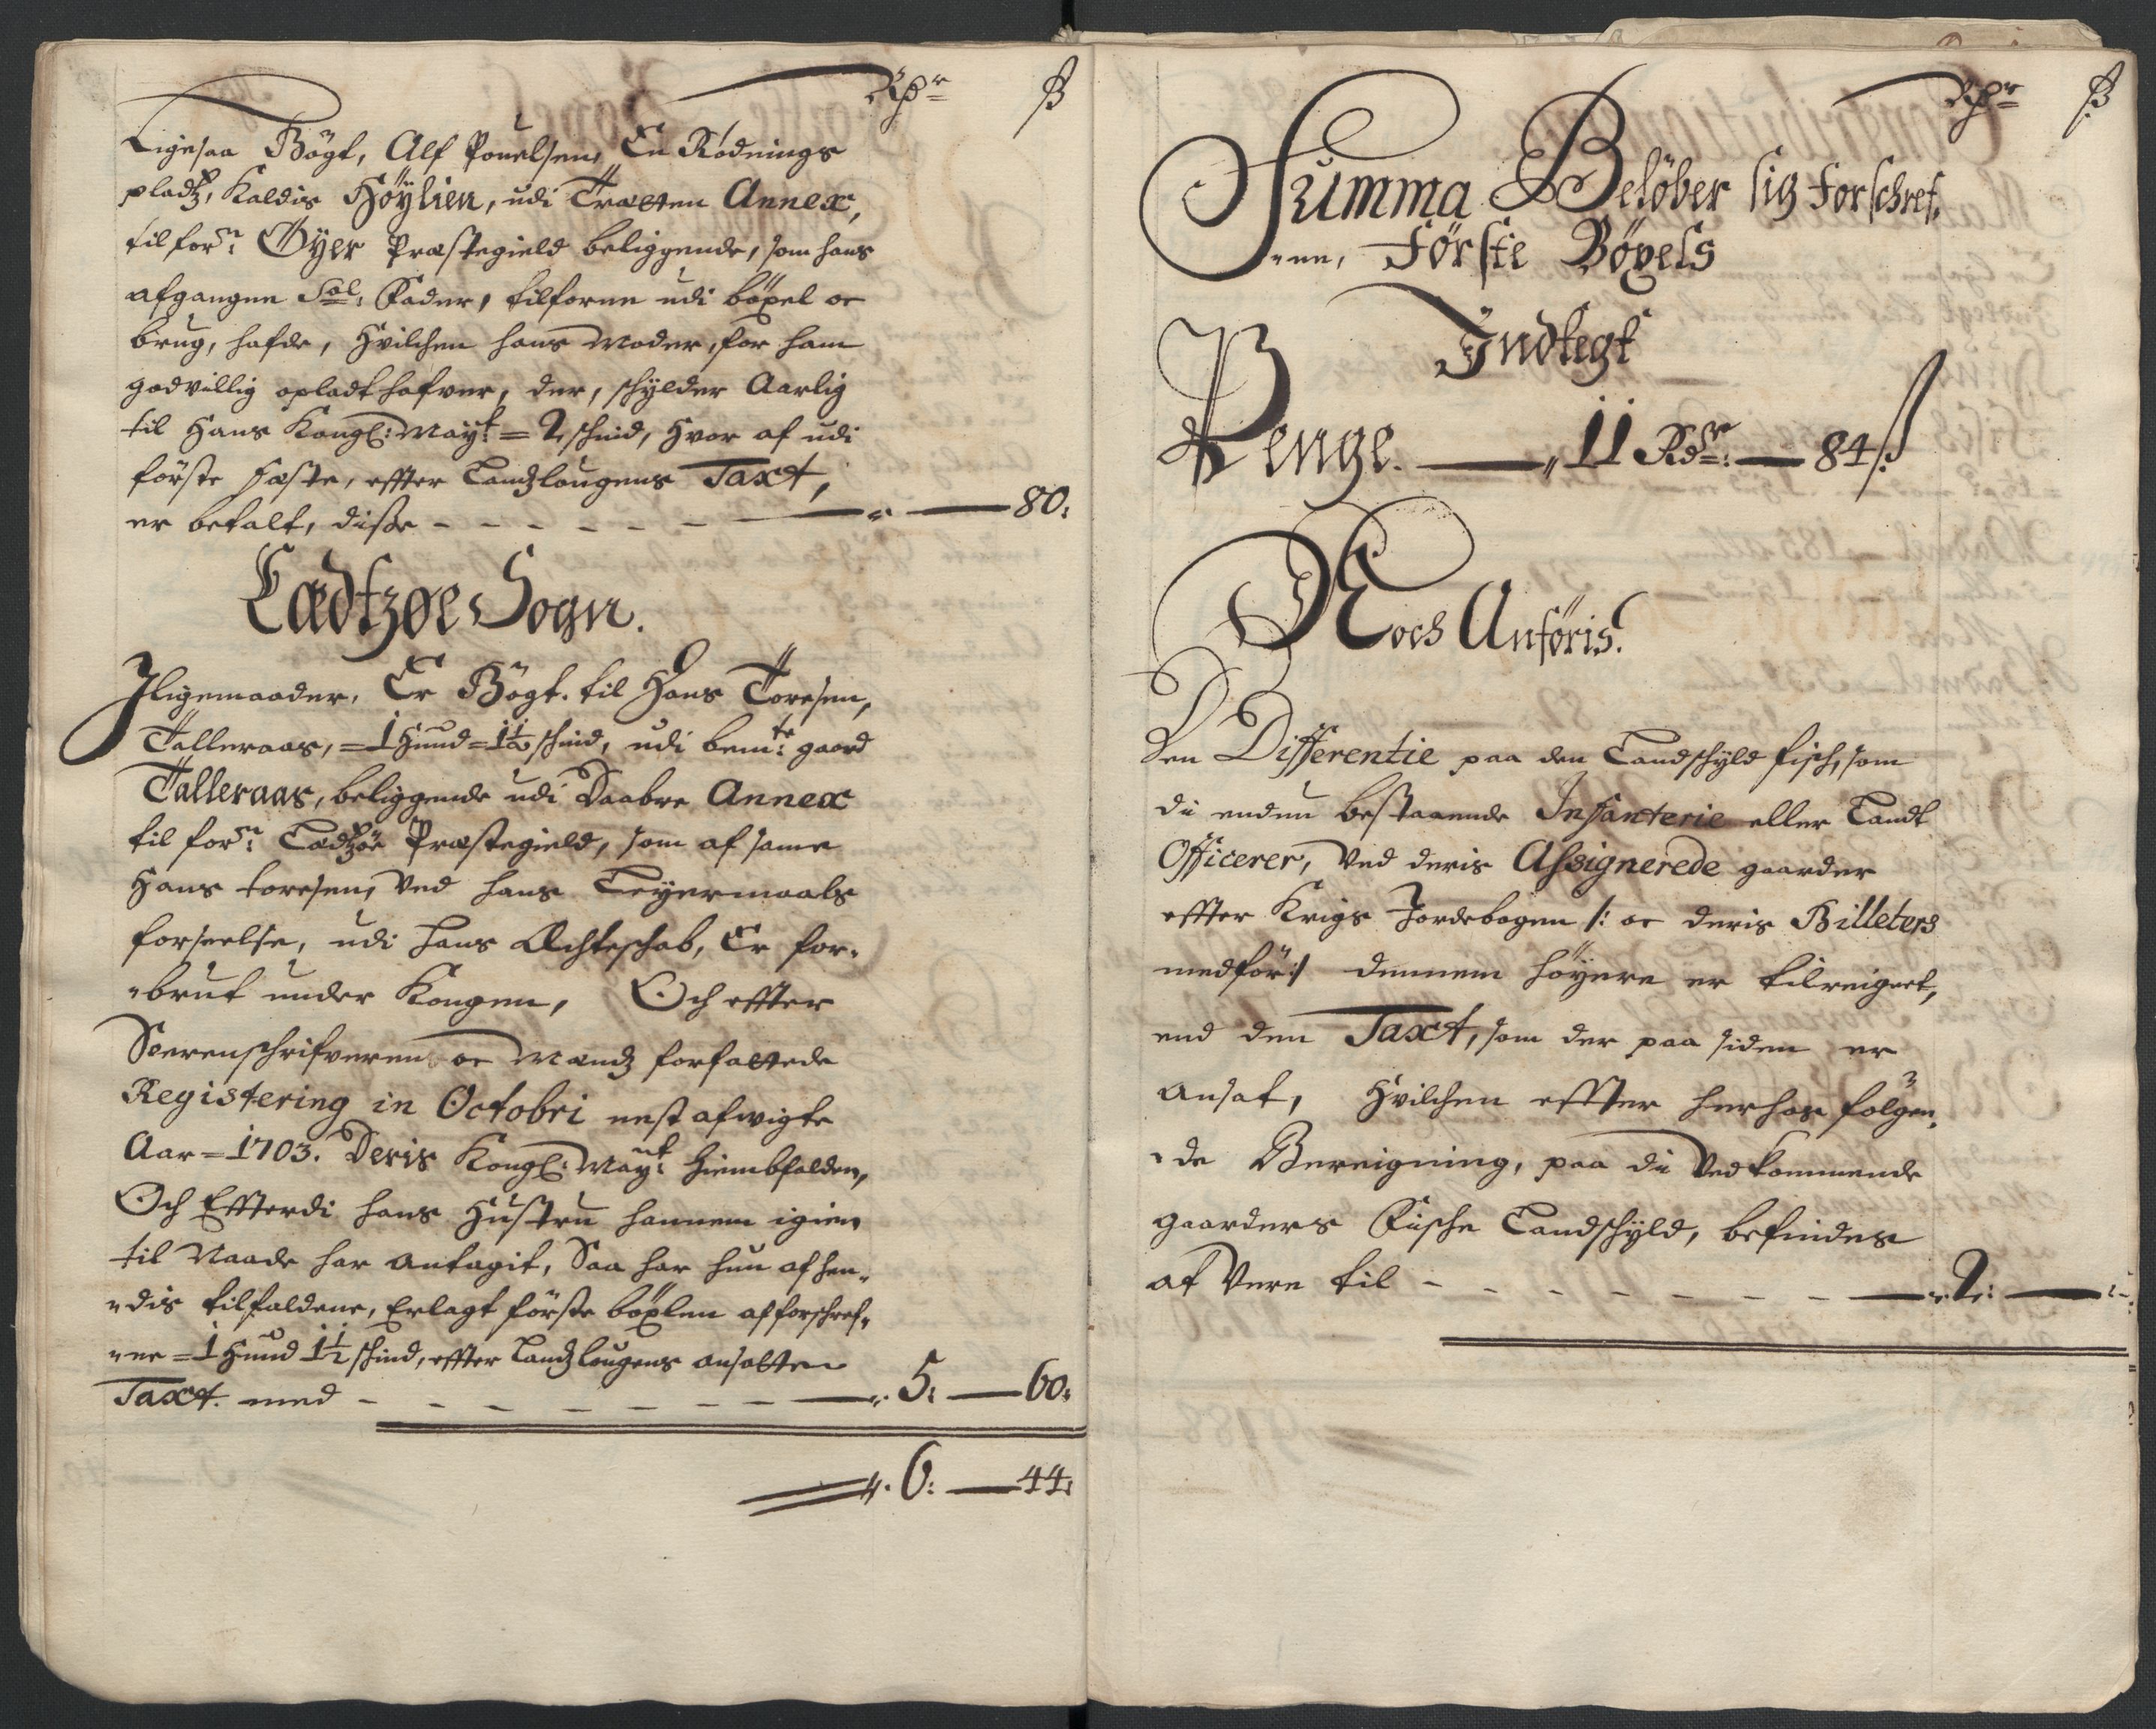 Rdr ß
Ligesaa Bögt, Alf Pouelsen, En Rødnings
pladtz, Kaldis Höÿlien, udi Tratten Annex,
til forn: Öÿer Præstegield beliggende, som hans
afgangne Sal: Fader, tilforne udi böxel oc
brug, hafde, Hvilchen hans Moder, for ham
godvillig opladt hafver, der, schÿlder Aarlig
til Hans Kongl: Mayt: = 2 schind, Hvor af udi
förste fæste, effter Landzlougens Taxt,
er betalt, disse - - - - - - „ — 80:
Lædtzøe Sogn.
Jligemaader, Er Bögt. til Hans Toresen,
Talleraas, = 1 Hund = 1½ schind, udi bemte: gaard
Talleraas, beliggende udi Daabre Annex
til forn: Lædtzöe Præstegield, som af samme
Hans toresen, Ved hans Leÿermaals
forseelse, udi hans Ächteschab, Er for-
brut under Kongen, Och effter
Soerenschrifveren oc Mændz forfattede
Registering in Octobri nest afvigte
Aar = 1703. Deris Kongl: Mayt: hiembfalden,
Och Effterdi hans Hustru hannem igien
til Naade har antagit, Saa har hun af hen-
dis tilfaldene, Erlagt förste böxlen af forschref-
ne = 1 Hund 1½ schind, effter Landzlougens ansatte
Taxt. med - - - - - - - - 5: — 60:
6: — 44:
Rdr ß
Summa Belöber sig forschref-
ne, Förste Böxels
Indtegt
Penge. — „ 11 Rdr: — 84 ß
Noch Anföris.
Den Differentie paa den Landschÿld fisch, som
di endnu bestaaende Infanterie eller Landt
Officerer, Ved deris Assignerede gaarder
effter Krigs Jordebogen /: oc deris Billeters
medför :/ dennem höÿere er tilreignet,
end den Taxt, som der paa siden er
ansat, Hvilchen effter herhos folgen-
de Bereigning, paa di Vedkommende
gaarders Fische Landschÿld, befindes
at Vere til - - - - - - - 2: — „: